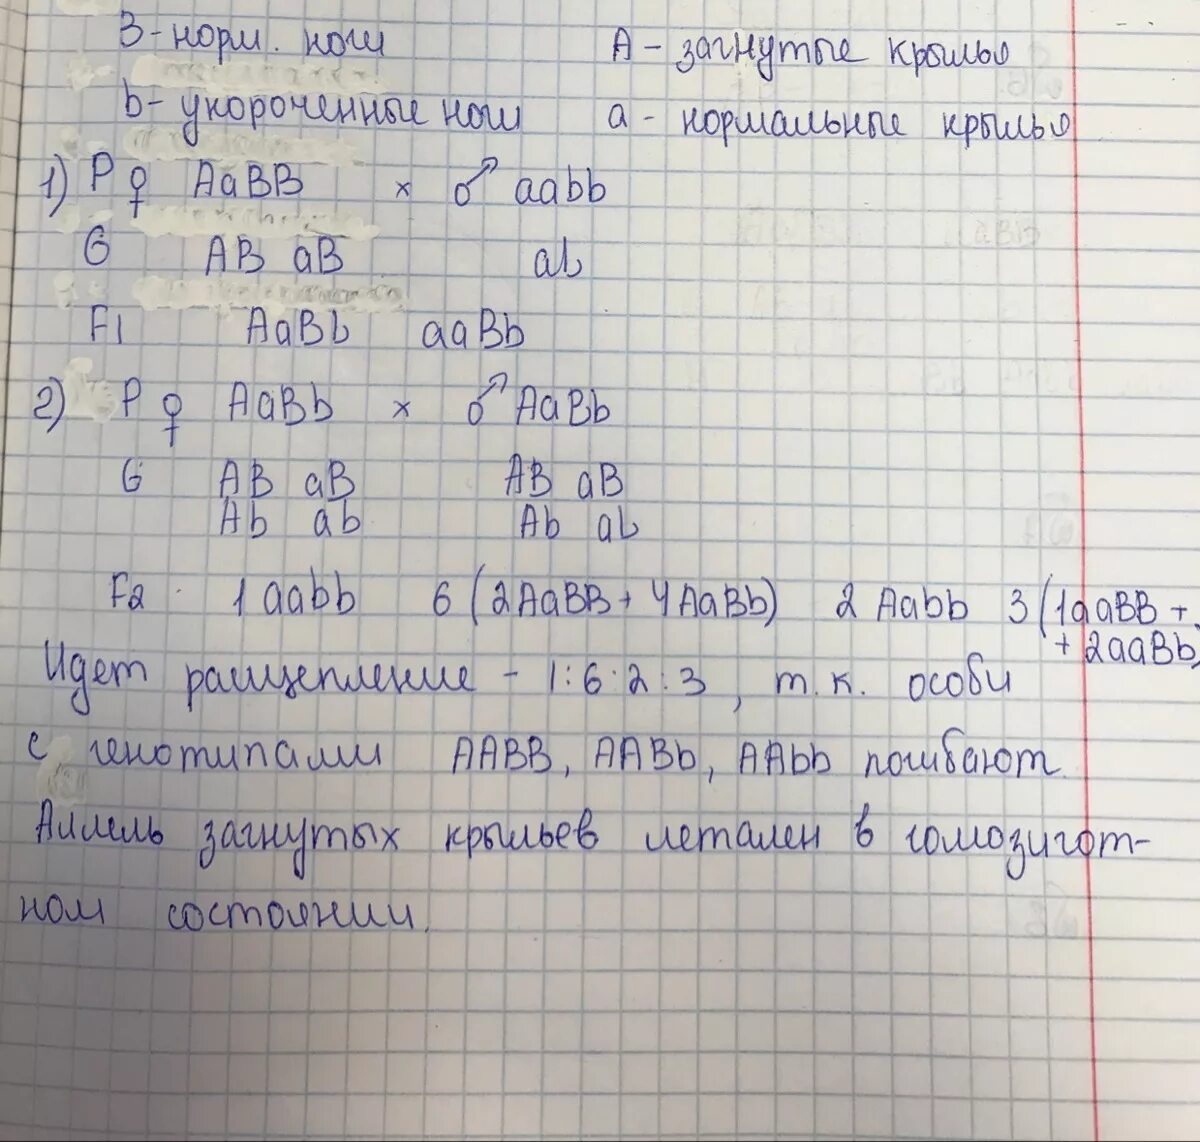 B - норм. ноги A - загнутые крылья
b - укороченные ноги a - нормальные крылья
1) P ♀ AaBB × ♂ aabb
G AB aB ab
F1 AaBb aaBb
2) P ♀ AaBb × ♂ AaBb
G AB aB AB aB
Ab ab Ab ab
F2 1 aabb 6 (2AaBB + 4AaBb) 2 Aabb 3 (1aaBB +
+ 2aaBb)
Идет расщепление - 1:6:2:3, т.к. особи
с генотипами AABB, AABb, AAbb погибают.
Аллель загнутых крыльев летален в гомозигот-
ном состоянии.